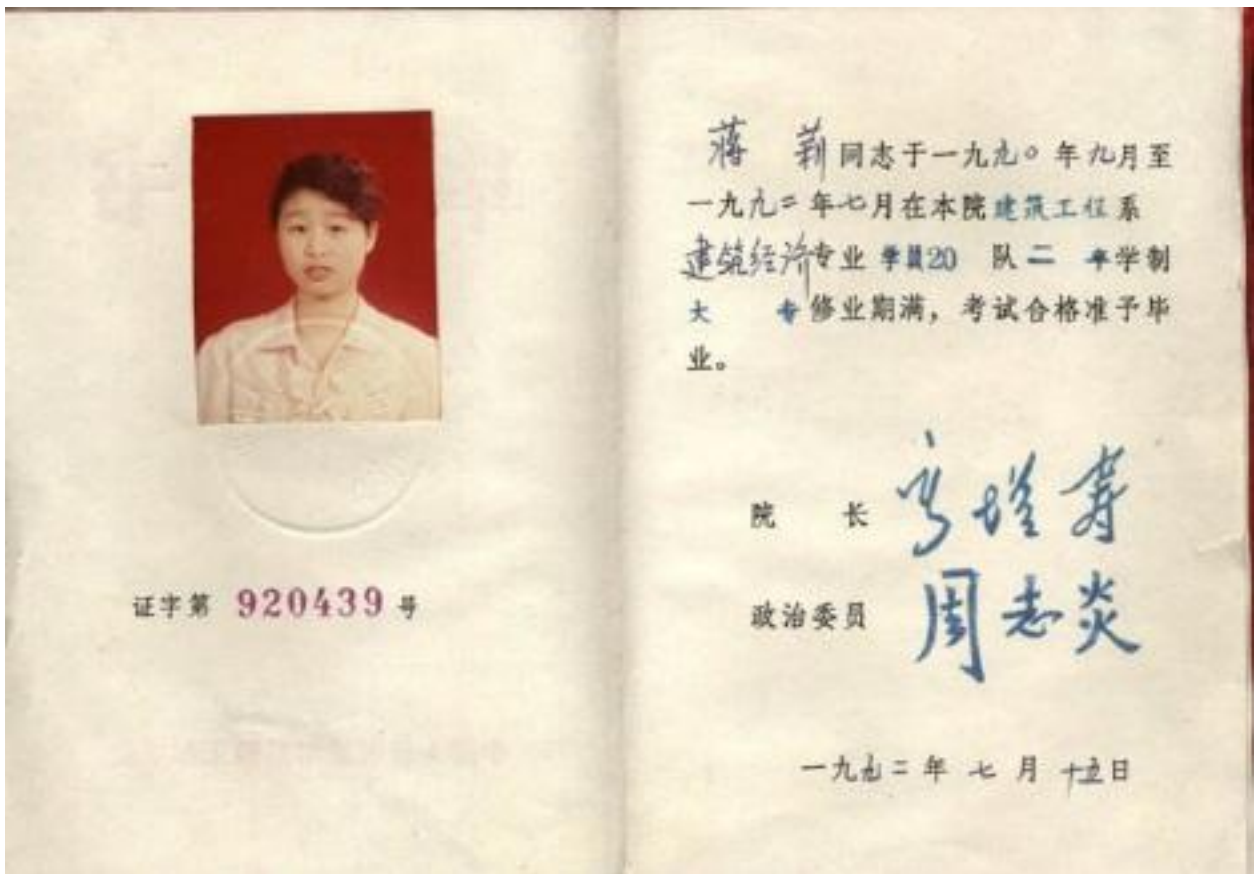 证字第 920439 号
蒋 莉同志于一九九〇年九月至
一九九二年七月在本院建筑工程系
建筑经济专业 学员20 队二 年学制
大 专修业期满，考试合格准予毕
业。
院 长 高增寿
政治委员 周志炎
一九九二年七月十五日